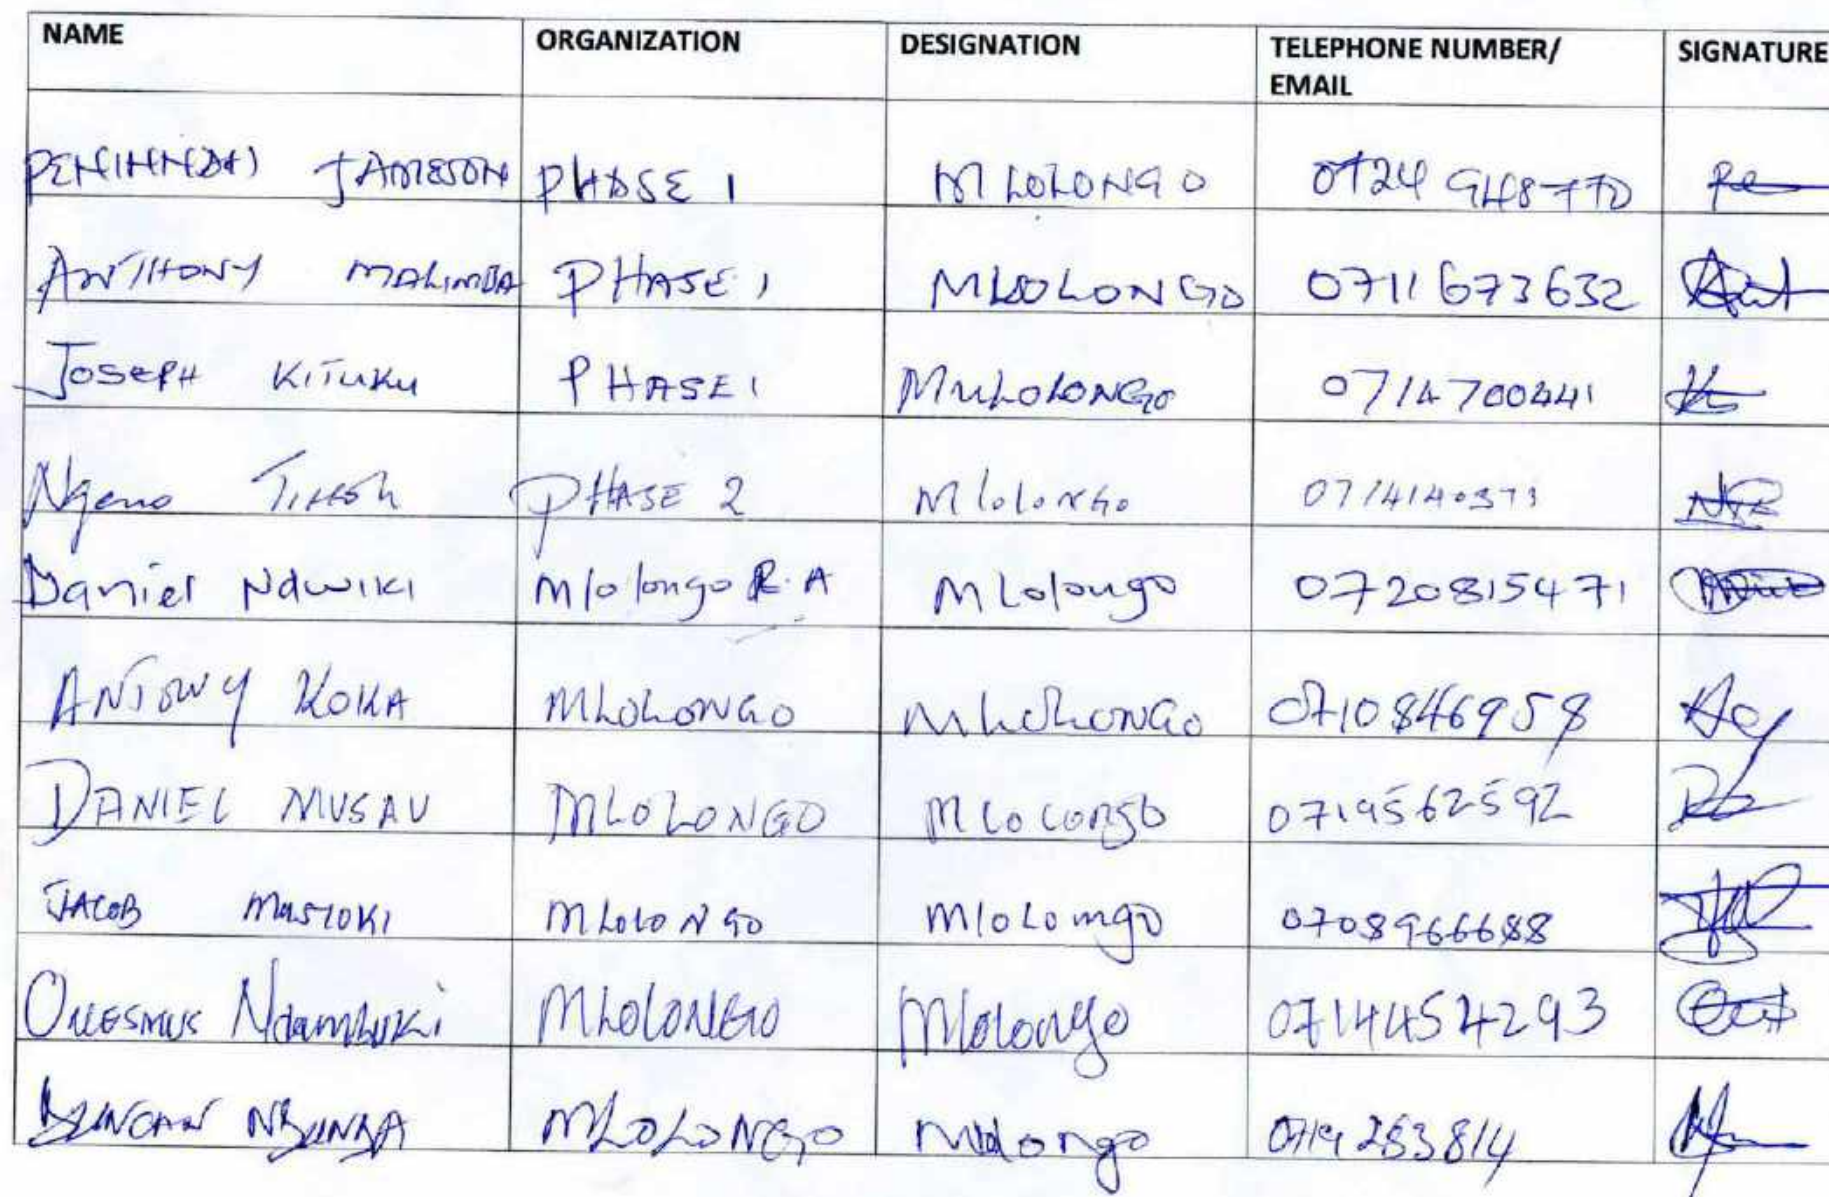 NAME ORGANIZATION DESIGNATION TELEPHONE NUMBER/ EMAIL SIGNATURE
PENINNAH JAMESON PHASE 1 MLOLONGO 0724 948770
ANTHONY MALIMBA PHASE 1 MLOLONGO 0711673632
JOSEPH KITUKU PHASE 1 MULOLONGO 0714700441
Ngeno PHASE 2 Mlolongo
Daniel Ndwiki Mlolongo R.A Mlolongo 0720815471
ANTONY KOKA MLOLONGO MLOLONGO 0710846958
DANIEL MUSAU MLOLONGO MLOLONGO 0719562592
JACOB MUSYOKI MLOLONGO Mlolongo 0708966688
ONESMUS Ndambuki MLOLONGO Mlolongo 0714454293
DUNCAN MLOLONGO Mlolongo 0719283814